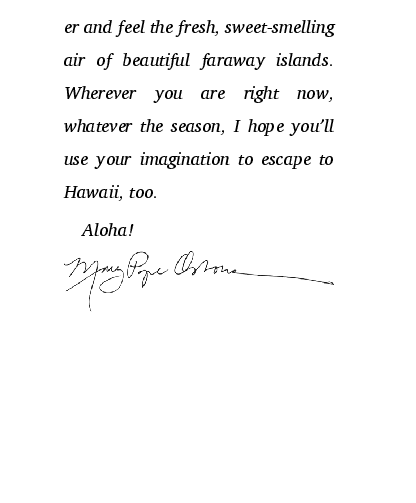 er and feel the fresh, sweet-smelling
air of beautiful faraway islands.
Wherever you are right now,
whatever the season, I hope you’ll
use your imagination to escape to
Hawaii, too.
Aloha!
Mary Pope Osborne